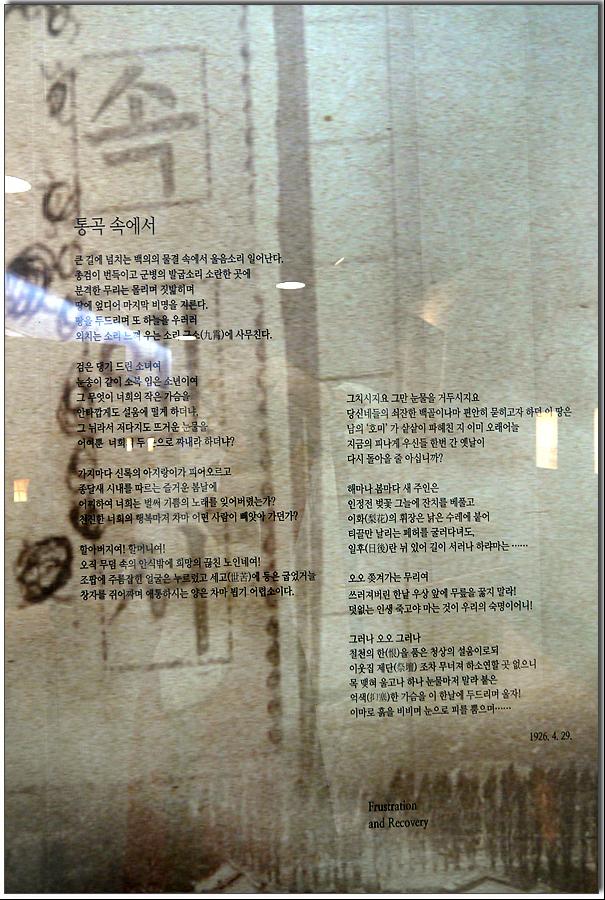 속
통곡 속에서
큰 길에 넘치는 백의의 물결 속에서 울음소리 일어난다.
총검이 번득이고 군병의 발굽소리 소란한 곳에
분격한 무리는 몰리며 짓밟히며
땅에 엎디어 마지막 비명을 지른다.
땅을 두드리며 또 하늘을 우러러
외치는 소리 느껴 우는 소리 구소(九霄)에 사무친다.
검은 댕기 드린 소녀여
눈송이 같이 소복 입은 소년이여
그 무엇이 너희의 작은 가슴을
안타깝게도 설움에 밀게 하더냐,
그 뉘라서 저다지도 뜨거운 눈물을
어여쁜 너희의 두 눈으로 짜내라 하더냐?
가지마다 신록의 아지랑이가 피어오르고
종달새 시내를 따르는 즐거운 봄날에
어찌하여 너희는 벌써 기쁨의 노래를 잊어버렸는가?
천진한 너희의 행복마저 차마 어떤 사람이 빼앗아 가던가?
할아버지여! 할머니여!
오직 무덤 속의 안식밖에 희망의 끊친 노인네여!
조팝에 주름잡힌 얼굴은 누르렀고 세고(世苦)에 등은 굽었거늘
창자를 쥐어짜며 애통하시는 양은 차마 뵙기 어렵소이다.
그치시지요 그만 눈물을 거두시지요
당신네들의 쇠잔한 백골이나마 편안히 묻히고자 하던 이 땅은
남의 '호미'가 샅샅이 파헤친 지 이미 오래어늘
지금의 피나게 우신들 한번 간 옛날이
다시 돌아올 줄 아십니까?
해마다 봄마다 새 주인은
인정전 벚꽃 그늘에 잔치를 베풀고
이화(梨花)의 휘장은 낡은 수레에 붙어
티끌만 날리는 폐허를 굴러다녀도,
일후(日後)란 뉘 있어 길이 서러나 하랴마는 ……
오오 쫓겨가는 무리여
쓰러져버린 한낱 우상 앞에 무릎을 꿇지 말라!
덧없는 인생 죽고야 마는 것이 우리의 숙명이어니!
그러나 오오 그러나
철천의 한(恨)을 품은 청상의 설움이로되
이웃집 제단(祭壇) 조차 무너져 하소연할 곳 없으니
목 맺혀 울고나 하나 눈물마저 말라 붙은
억색(抑塞)한 가슴을 이 한날에 두드리며 울자!
이마로 흙을 비비며 눈으로 피를 뿜으며……
1926. 4. 29.
Frustration
and Recovery